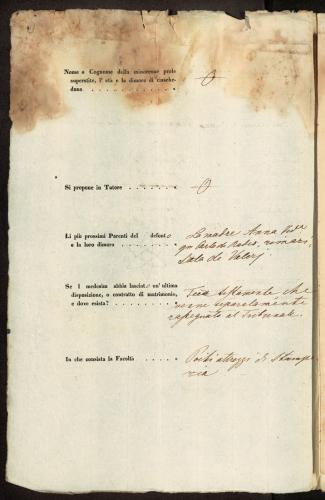 Nome e Cognome della minorenne prole
superstite, l' età e la dimora di ciasche-
duna
O
Si propone in Tutore
O
Li più prossimi Parenti del defonto
e la loro dimora
La madre Anna
qm Carlo de
Se I medesim abbia lasciato un' ultima
disposizione, o contratto di matrimonio,
e dove esista?
che
separatamente
al Tribunale.
In che consista la Facoltà
Pochi attrezzi di Stampe
ria